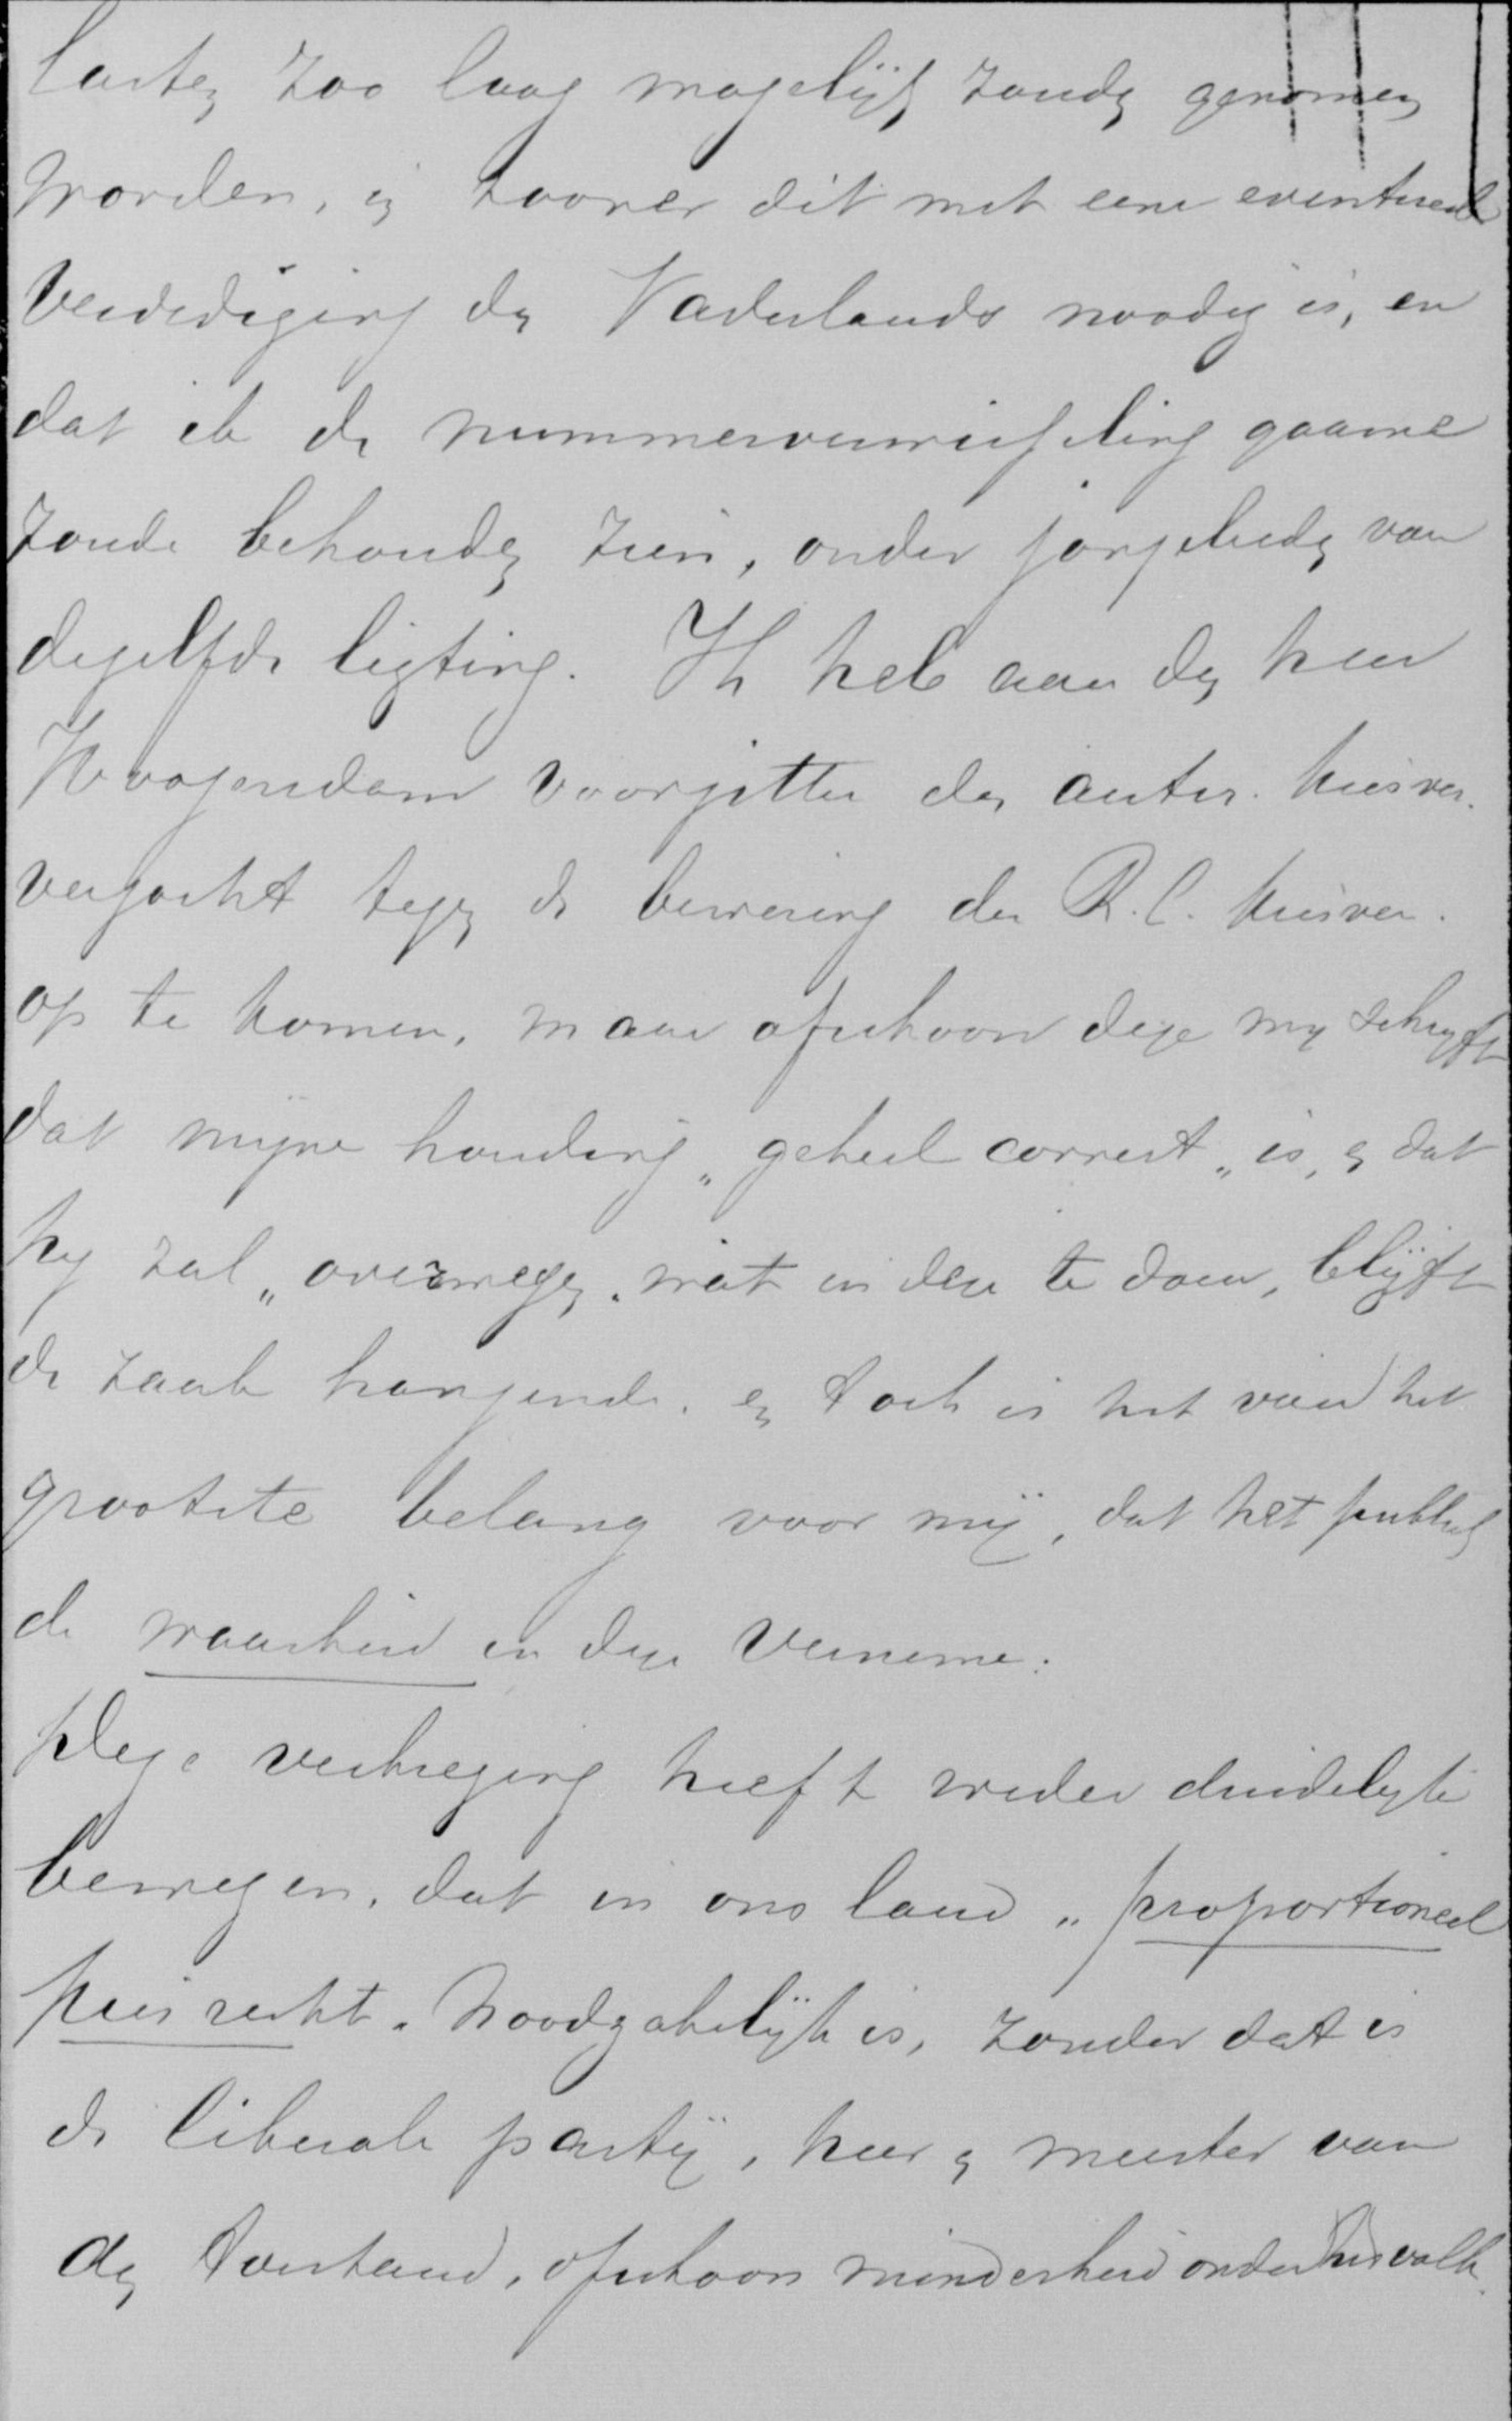 lasten zoo laag mogelijk zouden genomen
worden, en zoover dit met eene eventueele
verdediging des Vaderlands noodig is, en
dat ik de nummerverwisseling gaarne
zoude behouden zien, onder jongelieden van
dezelfde ligting. Ik heb aan den heer
Hoogendam voorzitter der antir. kiesver.
verzocht tegen de bewering der R.C. kiesver.
op te komen, maar ofschoon deze mij schrijft
dat mijne houding „geheel correct„ is, en dat
hij zal „overwegen„ wat in deze te doen, blijft
de zaak hangende. en toch is het van het
grootste belang voor mij, dat het publiek
de waarheid in deze verneme.
Deze verkiezing heeft weder duidelijk
bewezen, dat in ons land „proportioneel
kiesrecht„ noodzakelijk is, zonder dat is
de liberale partij, heer en meester van
den toestand, ofschoon minderheid onder het volk.